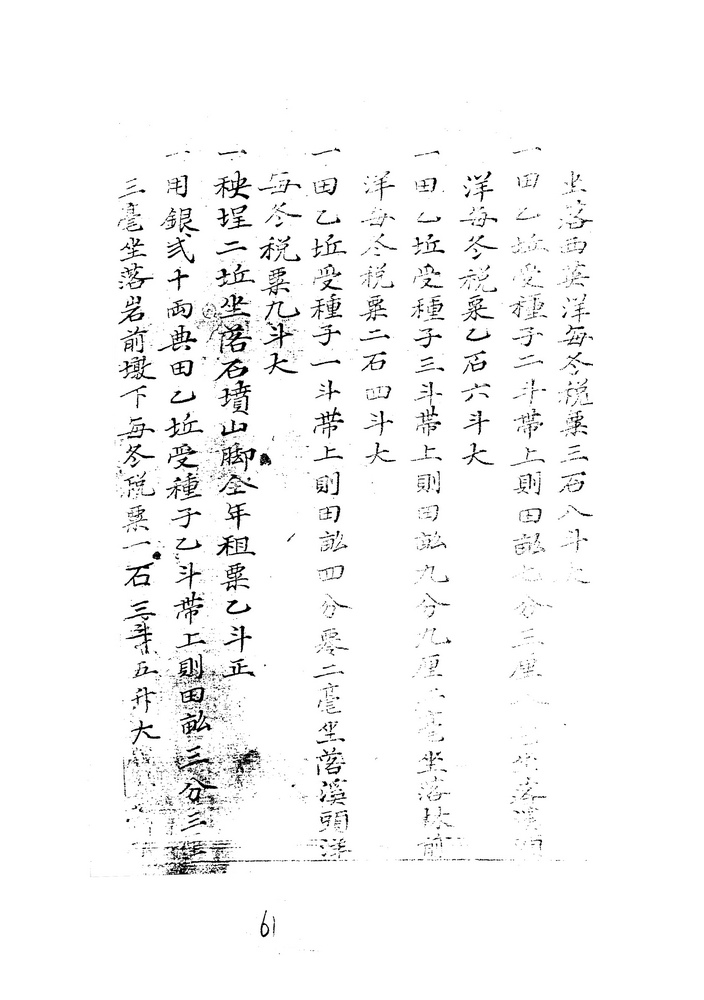 坐落西 洋每冬稅粟三石八斗大
一田乙坵受種子二斗帶上則田畝七分三厘 坐落溪頭
洋每冬稅粟乙石六斗大
一田乙坵受種子三斗帶上則田畝九分九厘二毫坐落林前
洋每冬稅粟二石四斗大
一田乙坵受種子一斗帶上則田畝四分零二毫坐落溪頭洋
每冬稅粟九斗大
一秧埕二坵坐落石墳山腳全年租粟乙斗正
一用銀弍十両典田乙坵受種子乙斗帶上則田畝三分三厘
三毫坐落岩前墩下每冬稅粟一石三斗五升大
61